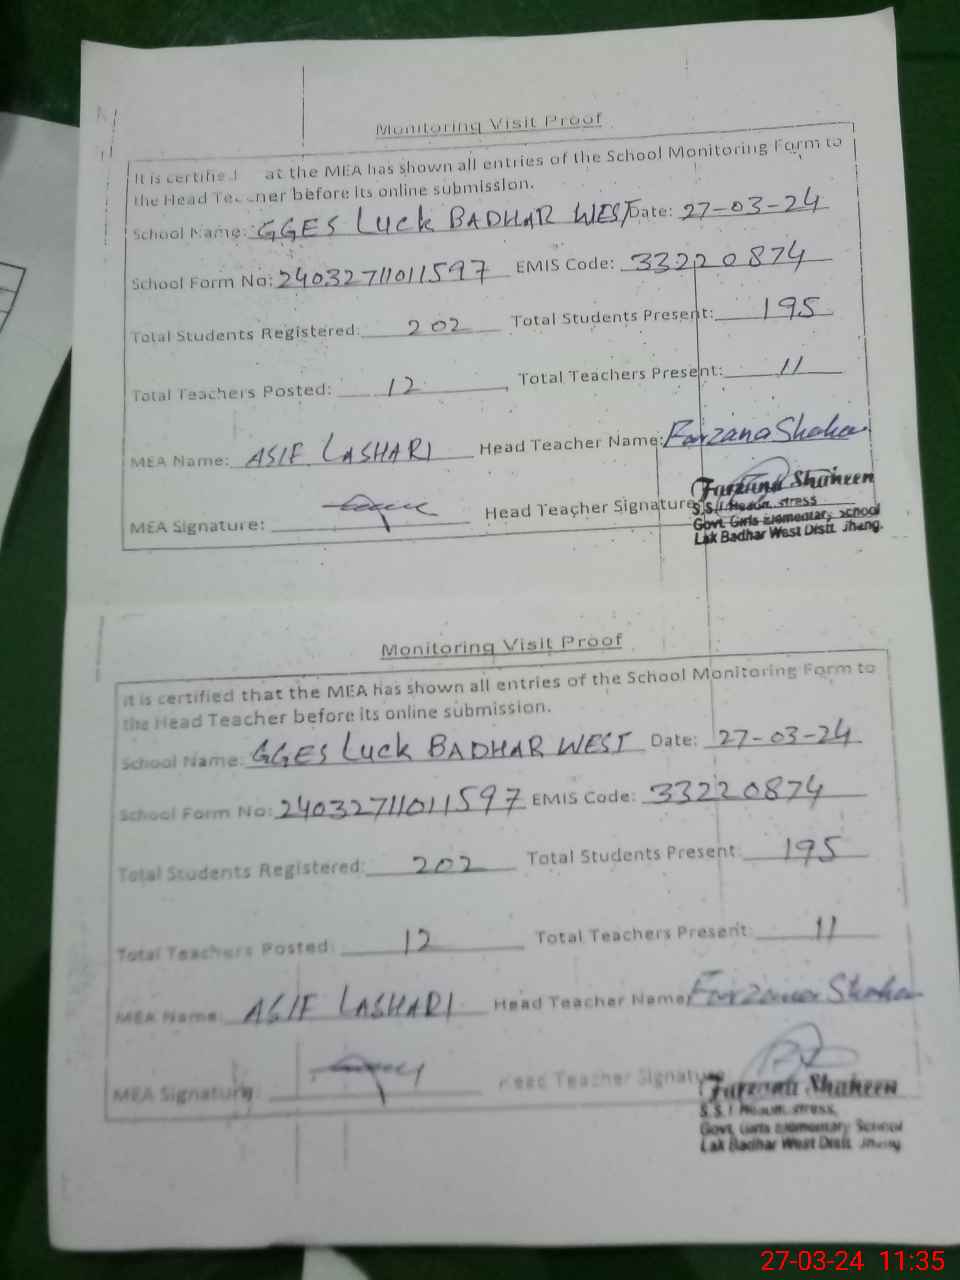 Monitoring Visit Proof
It is certified at the MEA has shown all entries of the School Monitoring Form to
the Head Teacher before its online submission.
School Name: GGES Luck BADHAR WEST Date: 27-03-24
School Form No: 24032711011597 EMIS Code: 33220874
Total Students Registered: 202 Total Students Present: 195
Total Teachers Posted: 12 Total Teachers Present: 11
MEA Name: ASIF LASHARI Head Teacher Name: Farzana Shaheen
MEA Signature: Head Teacher Signature
Farzana Shaheen
S.S.T Headmistress
Govt. Girls Elementary School
Lak Badhar West Distt. Jhang.
Monitoring Visit Proof
It is certified that the MEA has shown all entries of the School Monitoring Form to
the Head Teacher before its online submission.
School Name: GGES Luck BADHAR WEST Date: 27-03-24
School Form No: 24032711011597 EMIS Code: 33220874
Total Students Registered: 202 Total Students Present: 195
Total Teachers Posted: 12 Total Teachers Present: 11
MEA Name: ASIF LASHARI Head Teacher Name Farzana Shaheen
MEA Signature: Head Teacher Signature
Farzana Shaheen
S.S.T Headmistress,
Govt. Girls Elementary School
Lak Badhar West Distt. Jhang
27-03-24 11:35